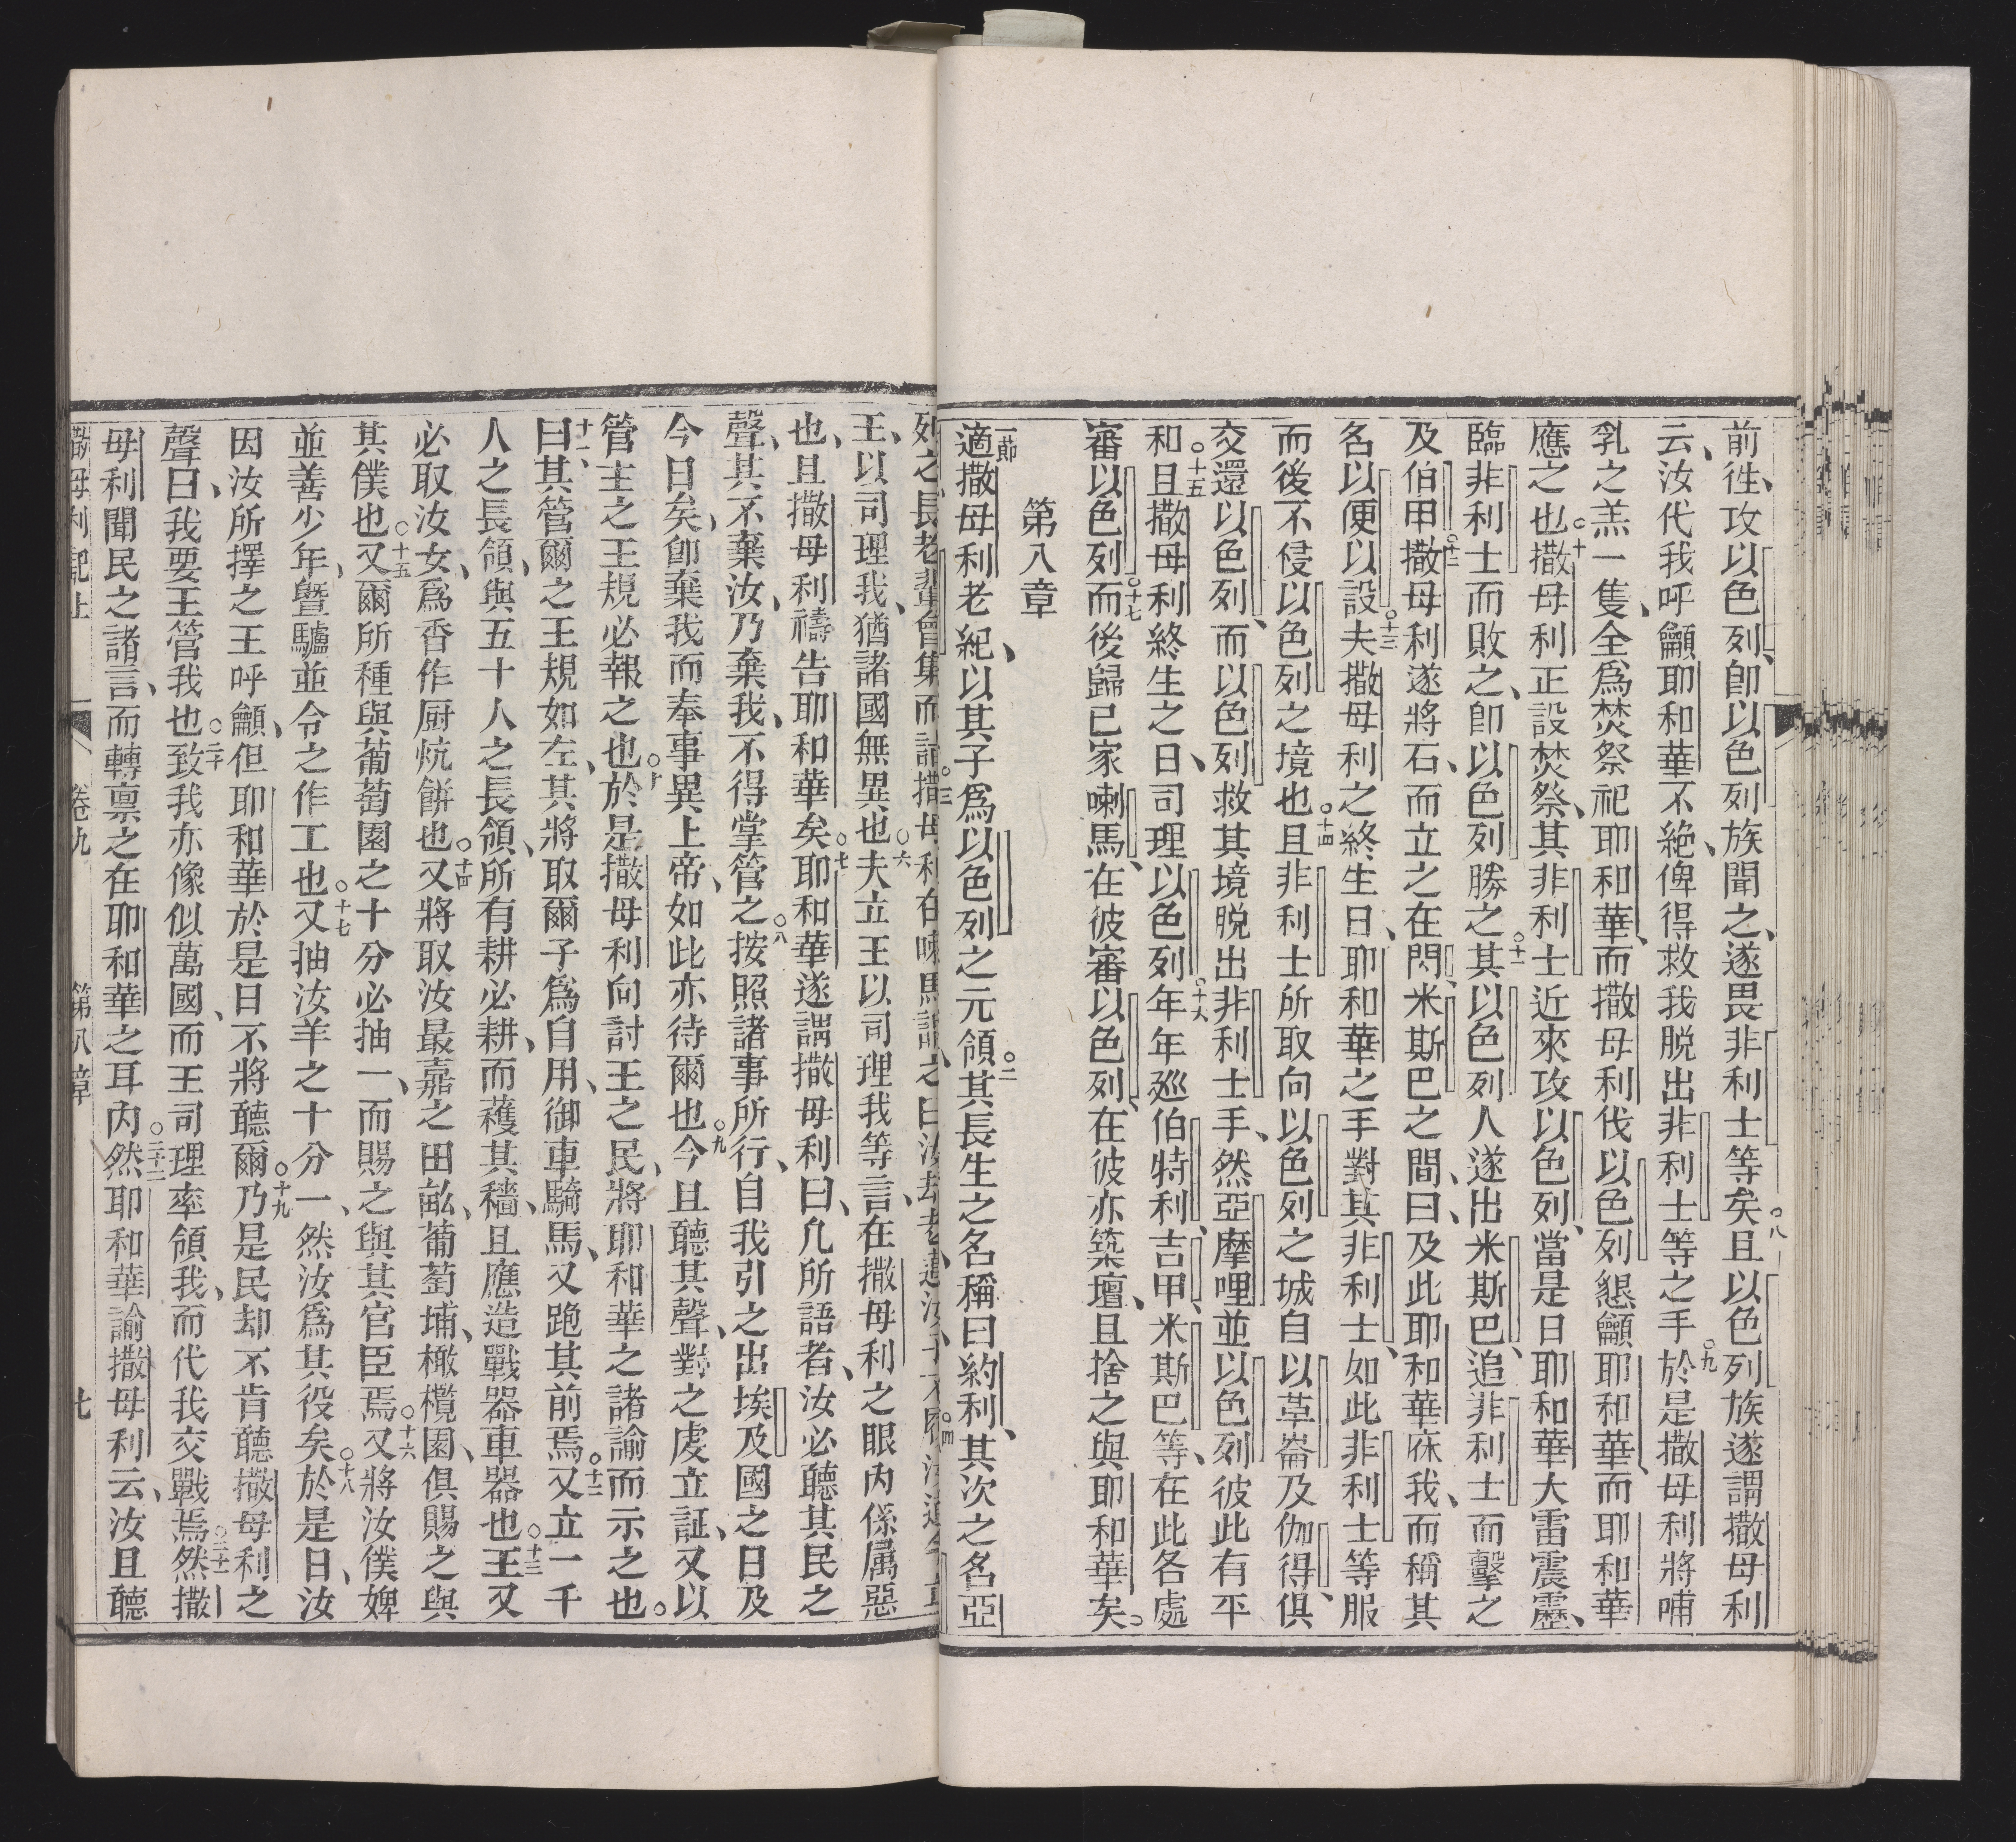 前徃攻以色列卽以色列族聞之遂畏非利士等矣○八且以色列族遂謂撒母利
云汝代我呼籲耶和華不絶俾得救我脱出非利士等之手○九於是撒母利將哺
乳之羔一隻全爲焚祭祀耶和華而撒母利伐以色列懇籲耶和華而耶和華
應之也○十撒母利正設焚祭其非利士近來攻以色列當是日耶和華大雷震靂
臨非利士而敗之卽以色列勝之○十一其以色列人遂出米斯巴追非利士而擊之
及伯甲○十二撒母利遂將石而立之在閃米斯巴之間曰及此耶和華庥我而稱其
名以便以設○十三夫撒母利之終生日耶和華之手對其非利士如此非利士等服
而後不侵以色列之境也○十四且非利士所取向以色列之城自以革崙及伽得俱
交還以色列而以色列救其境脱出非利士手然亞摩哩並以色列彼此有平
和○十五且撒母利終生之日司理以色列○十六年年廵伯特利吉甲米斯巴等在此各處
審以色列○十七而後歸已家喇馬在彼審以色列在彼亦築壇且捨之與耶和華矣
第八章
一節適撒母利老紀以其子爲以色列之元領○二其長生之名稱曰約利其次之名亞
列之長老輩會集而詣撒母利在喇馬○三
王以司理我猶諸國無異也○六夫立王以司理我等言在撒母利之眼內係属惡
也且撒母利禱告耶和華矣○七耶和華遂謂撒母利曰凡所語者汝必聽其民之
聲其不棄汝乃棄我不得掌管之○八按照諸事所行自我引之出埃及國之日及
今日矣卽棄我而奉事異上帝如此亦待爾也○九今且聽其聲對之虔立証又以
管主之王規必報之也○十於是撒母利向討王之民將耶和華之諸諭而示之也
十一曰其管爾之王規如左其將取爾子爲自用御車騎馬又跪其前焉○十二又立一千
人之長領與五十人之長領所有耕必耕而蘐其穡且應造戰器車器也○十三王又
必取汝女爲香作厨炕餅也○十四又將取汝最嘉之田畝葡萄埔橄欖園俱賜之與
其僕也○十五又爾所種與葡萄園之十分必抽一而賜之與其官臣焉○十六又將汝僕婢
並善少年暨驢並令之作工也○十七又抽汝羊之十分一然汝爲其役矣○十八於是日汝
因汝所擇之王呼籲但耶和華於是日不將聽爾○十九乃是民却不肯聽撒母利之
聲曰我要王管我也○二十致我亦像似萬國而王司理率領我而代我交戰焉○二十一然撒
母利聞民之諸言而轉禀之在耶和華之耳內○二十二然耶和華諭撒母利云汝且聽
撒母利記上 卷九 第八章 七